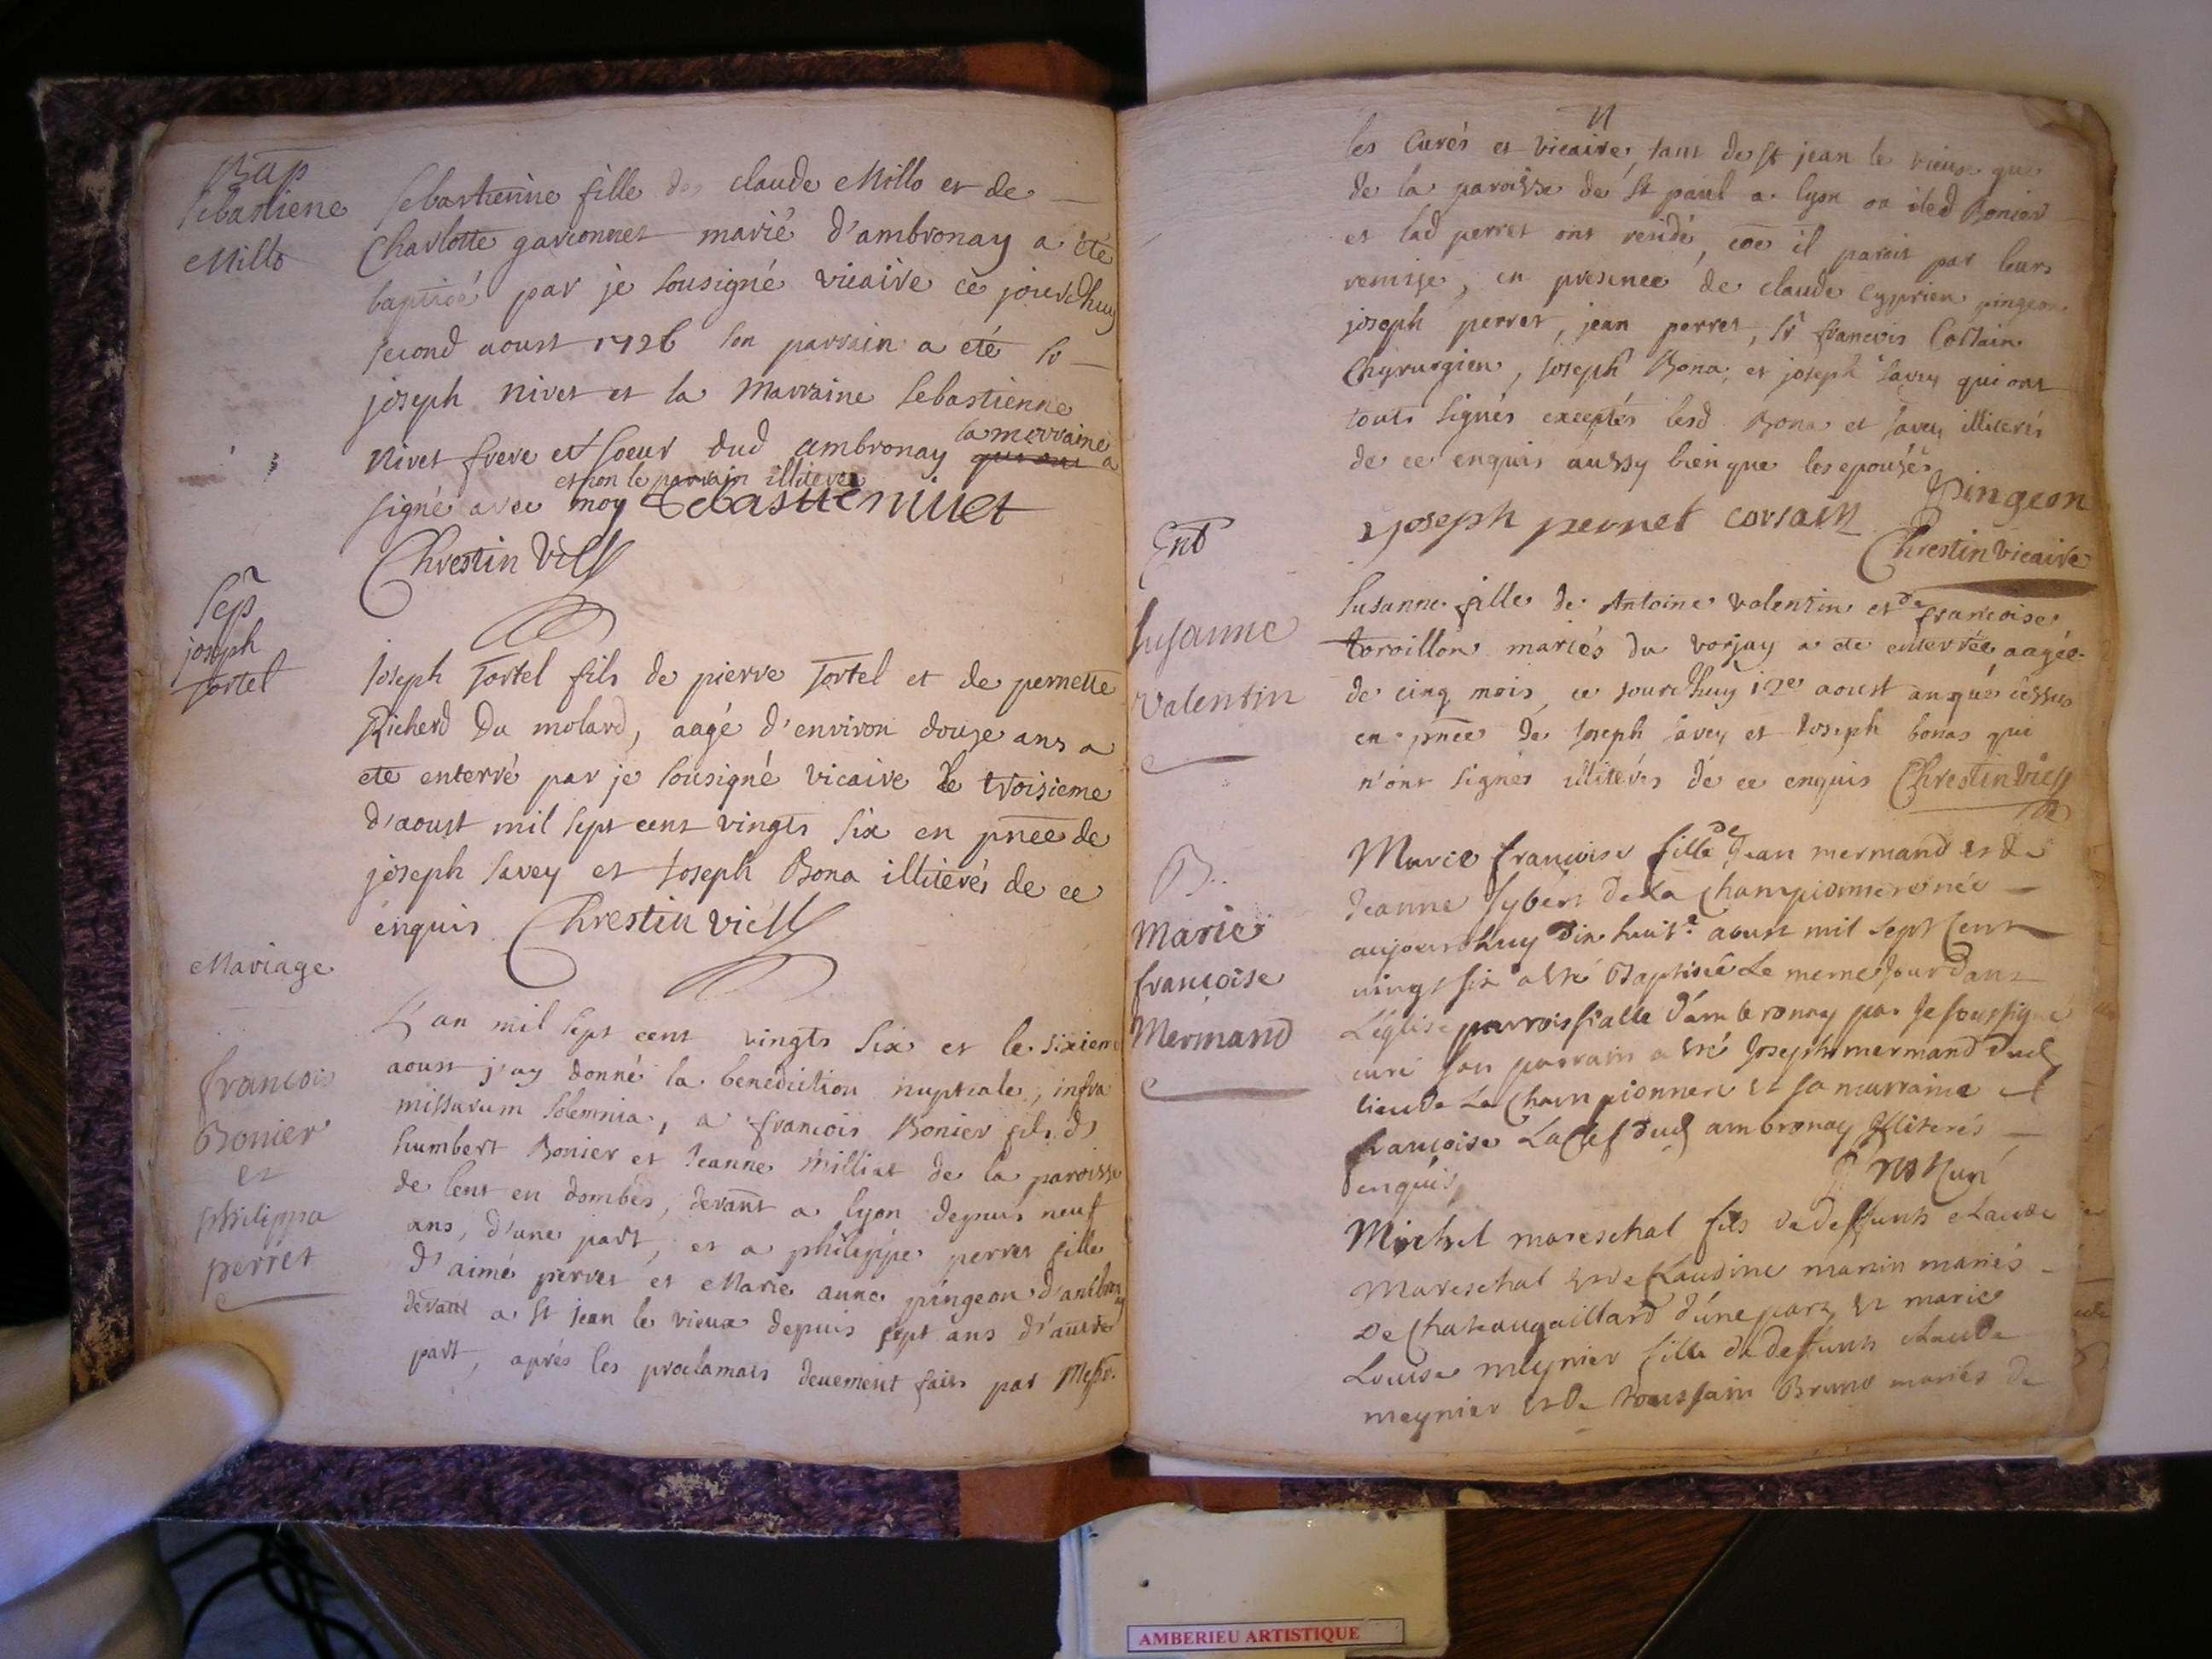 Bap
sebastiene
Millo
sebastienne fille de claude Millo et de
Charlotte garconnet marié d'ambronay a été
baptisé par je sousigné vicaire ce jourdhuy
second aoust 1726 son parrain a été sr
joseph nivet et la Marraine sebastienne
nivet frere et soeur dud ambronay la merraine a
et non le parrain illiteré
signé avec moy Sebastie niuet
Chrestin vic
Sep
joseph
Tortel
Joseph Tortel fils de pierre Tortel et de pernette
Richerd du molard, aagé d'environ douze ans a
eté enterré par je sousigné vicaire le troisieme
d'aoust mil sept cent vingts six en pnce de
joseph Savey et Joseph Bona illiterés de ce
enquis Chrestin vic
Mariage
francois
Bonier
et
philippa
perret
L'an mil sept cent vingts six et le sixiem
aoust j'ay donné la benediction nuptiale, infra
missarum solemnia, a francois Bonier fils d
humbert Bonier et Jeanne Milliat de la paroisse
de lent en dombes, devant a lyon depuis neuf
ans, d'une part, et a philippe perret fille
d'aimé perret et Marie anne pingeon d'ambron
devant a st jean le vieux depuis sept ans d'autre
part, aprés les proclamats deuement faits par Messr.
les Curés et vicaire, tant de st jean le vieux que
de la paroisse de st paul a lyon ou iled Bonier
et lad perret ont residé, coe il paroit par leurs
remise, en presence de claude Cyprien pingeon
joseph perret, jean perret, sr francois Cossain
Chyrurgien, Joseph Bona, et joseph Savey qui ont
touts signés exceptés lesd Bona et Savey illiterés
de ce enquis aussy bien que les epousés
Pingeon
joseph pernet corsain
Chrestin vicaire
Ent
Susanne
Valentin
Susanne fille de Antoine valentin et de francoise
toroillon mariés du vorjay a eté enterrée aagée
de cinq mois, ce jourdhuy 12e aoust an que dessus
en pnce de Joseph Savey et Joseph bonas qui
n'ont signés illiterés de ce enquis Chrestin vic
B.
Marie
françoise
Mermand
Marie françoise fille de Jean mermand et de
Jeanne Sybert de la Championniere née
aujourdhuy dix huit e aoust mil sept Cent
vingt six a été Baptisée le meme jour dans
L'eglise parroissialle d'ambronay par Je soussigné
curé son parrain a été Joseph mermand dud
lieu de La Championnere et sa marraine
françoise Laclef dud ambronay Illiterés
enquis
Michel mareschal fils de deffunts claude
Mareschal et de Claudine manin mariés
De Chateaugaillard d'une part, et marie
Louise meynier fille de deffunts claude
meynier et de toussain Bruno mariés de
AMBERIEU ARTISTIQUE